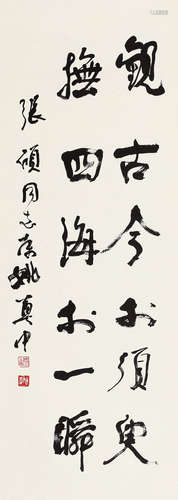 觀古今於須臾
撫四海於一瞬
張碩同志屬 姚奠中